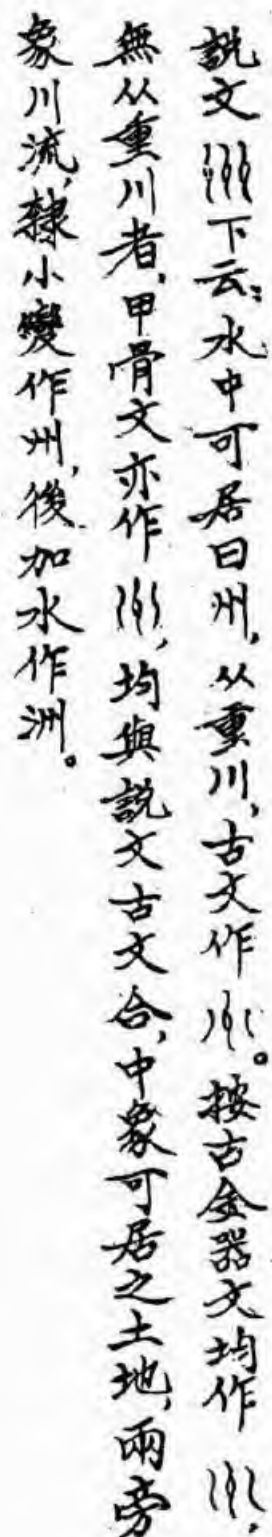 說文下云：水中可居曰州，从重川，古文作。按古金器文均作，
無从重川者，甲骨文亦作，均與說文古文合，中象可居之土地，兩旁
象川流，隸小變作州，後加水作洲。